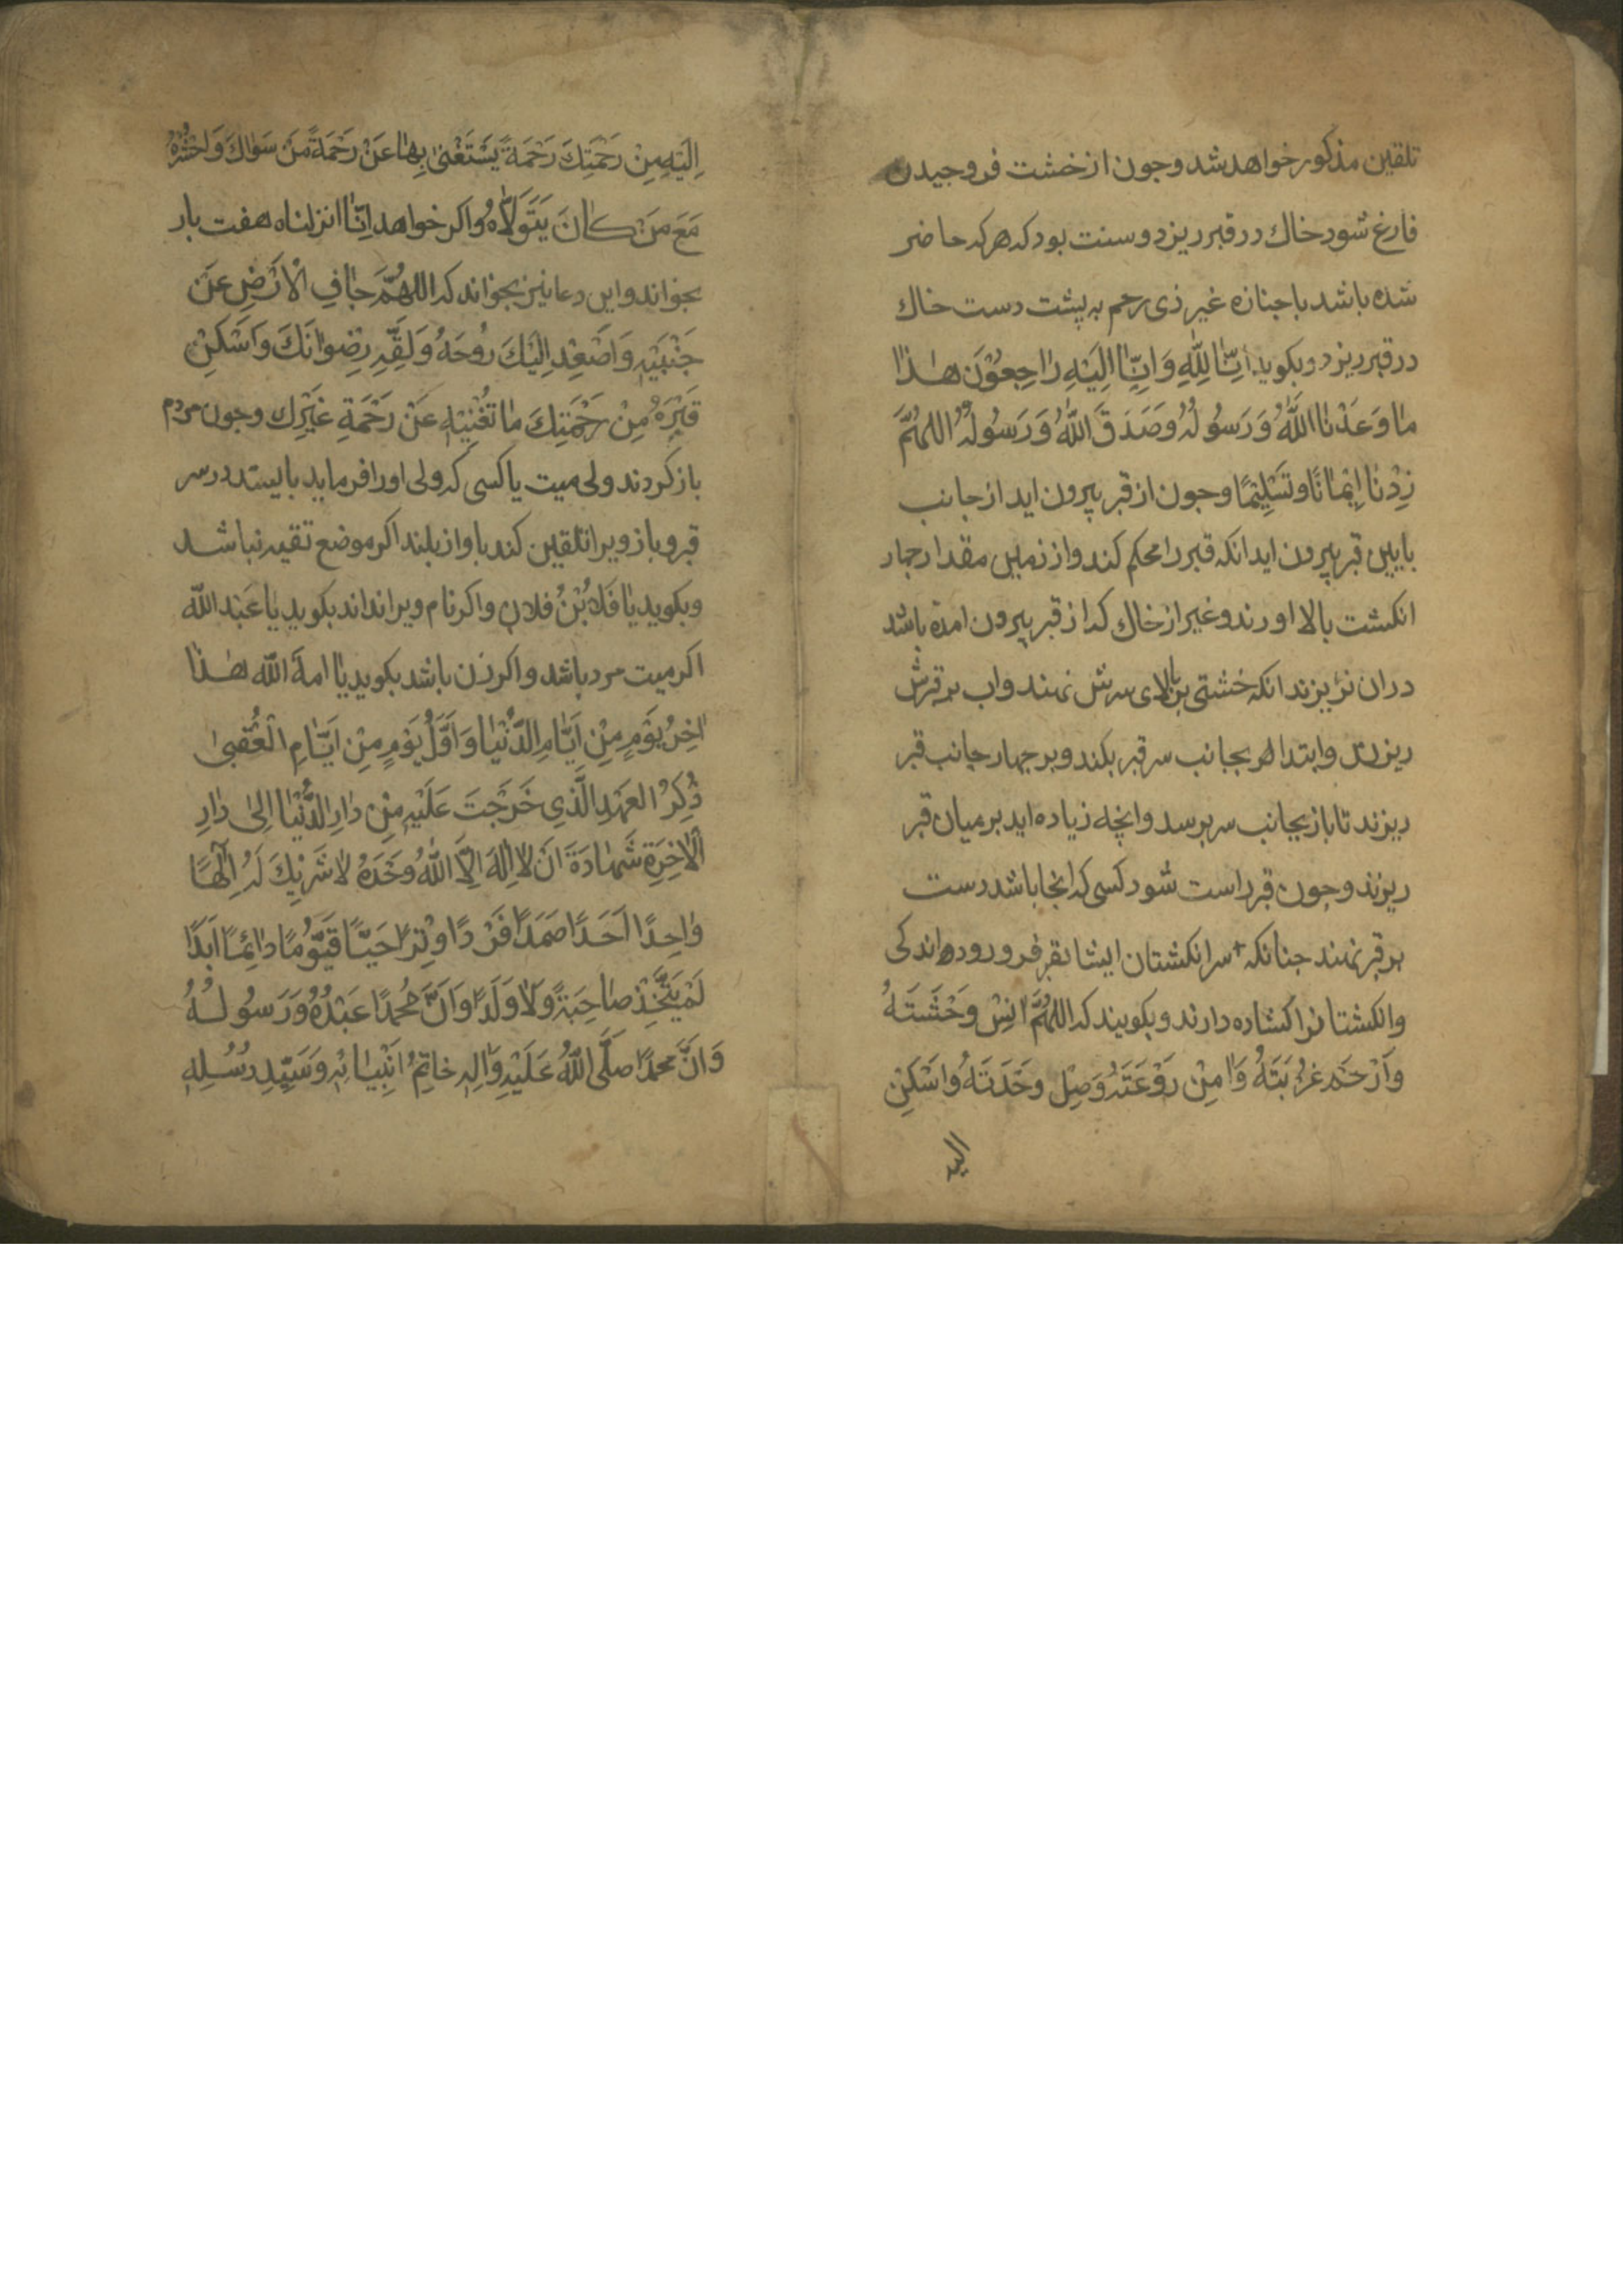 تلقین مذکور خواهد شد وجون از خشت فروجیدن
فارغ شود خاك در قبر ریزد و سنت بود که هر که حاضر
شده باشد با جنازه غیر ذی رحم به پشت دست خاك
در قبر ریزد و بکوید اِنَّا لِلّٰهِ وَاِنَّا اِلَیْهِ رَاجِعُوْنَ هٰذَا
مٰا وَعَدَنَا اللّٰهُ وَرَسُولُهُ وَصَدَقَ اللّٰهُ وَرَسُولُهُ اللهُمَّ
زِدْنَا اِیْمٰانًا وَتَسْلِیْمًا وجون از قبر بیرون اید از جانب
بایین قبر بیرون اید انکه قبر را محکم کند و از زمین مقدار جهار
انکشت بالا اورند و غیر از خاك که از قبر بیرون امده باشد
دران نریزند انکه خشتی بر بالای سرش نهند واب بر قبرش
ریزند وابتدا بجانب سر قبر بکند و بر جهار جانب قبر
ریزند تا باز بجانب سر برسد وانچه زیاده اید بر میان قبر
ریزند وجون قبر راست شود کسی که انجا باشد دست
بر قبر نهند جنانکه سر انکشتان ایشان بقبر فرو رود اندکی
وانکشتانرا کشاده دارند و بکویند که اللهُمَّ انِسْ وَحْشَتَهُ
وَارْحَمْ غُرْبَتَهُ وَاٰمِنْ رَوْعَتَهُ وَصِلْ وَحْدَتَهُ وَاَسْکِنْ
الیه
اِلَیْهِ مِنْ رَحْمَتِكَ رَحْمَةً یَسْتَغْنیٰ بِهٰا عَنْ رَحْمَةِ مَنْ سَوٰاكَ وَاحْشُرْهُ
مَعَ مَنْ کٰانَ یَتَوَلاّٰهُ واکر خواهد اِنّٰا انزلناه هفت بار
بخواند واین دعا نیز بخواند که اللهُمَّ جٰافِ الْاَرْضِ عَنْ
جَنْبَیْهِ وَاَصْعِدْ اِلَیْكَ رُوحَهُ وَلَقِّهِ رِضْوٰانَكَ وَاَسْکِنْ
قَبْرَهُ مِنْ رَحْمَتِكَ مٰا تُغْنِیْهِ عَنْ رَحْمَةِ غَیْرِك وجون مردم
باز کردند ولی میت یا کسی که ولی اورا فرماید بایستد در سر
قبر و باز ویرا تلقین کند باواز بلند اکر موضع تقیه نباشد
وبکوید یٰا فَلاٰ بْنُ فلان واکر نام ویرا نداند بکوید یٰا عَبْدَ اللّٰه
اکر میت مرد باشد واکر زن باشد بکوید یٰا امةَ اللّٰه هٰذٰا
اٰخِرُ یَوْمٍ مِنْ اَیّٰامِ الدُّنْیٰا وَاَوَّلُ یَوْمٍ مِنْ اَیّٰامِ الْعُقْبیٰ
ذْکِرْ العَهْدِ الَّذِی خَرَجْتَ عَلَیْهِ مِنْ دٰارِ الدُّنْیٰا اِلیٰ دٰارِ
الْاٰخِرَةِ شَهٰادَةَ اَنْ لاٰ اِلٰهَ اِلاَّ اللّٰهُ وَحْدَهُ لاٰ شَرِیْكَ لَهُ اِلٰهًا
وٰاحِدًا اَحَدًا صَمَدًا فَرْدًا وِتْرًا حَیًّا قَیُّوْمًا دٰائِمًا اَبَدًا
لَمْ یَتَّخِذْ صٰاحِبَةً وَلاٰ وَلَدًا وَاَنَّ مُحَمَّدًا عَبْدُهُ وَرَسُولُهُ
وَاَنَّ مُحَمَّدًا صَلَّی اللّٰهُ عَلَیْهِ وَاٰلِهِ خاتِمُ اَنْبِیٰائِهِ وَسَیِّدِ رُسُلِهِ